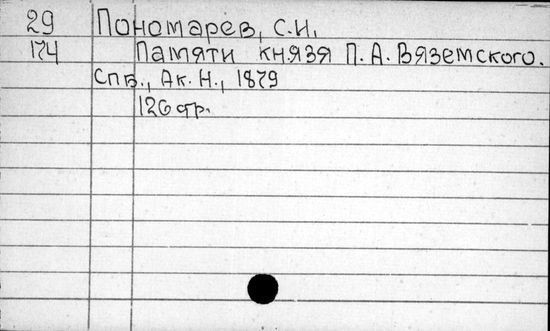 29 Пономарев, С.И.
174 Памяти князя П.А.Вяземского.
Спв., Ак.Н., 1879
126 стр.